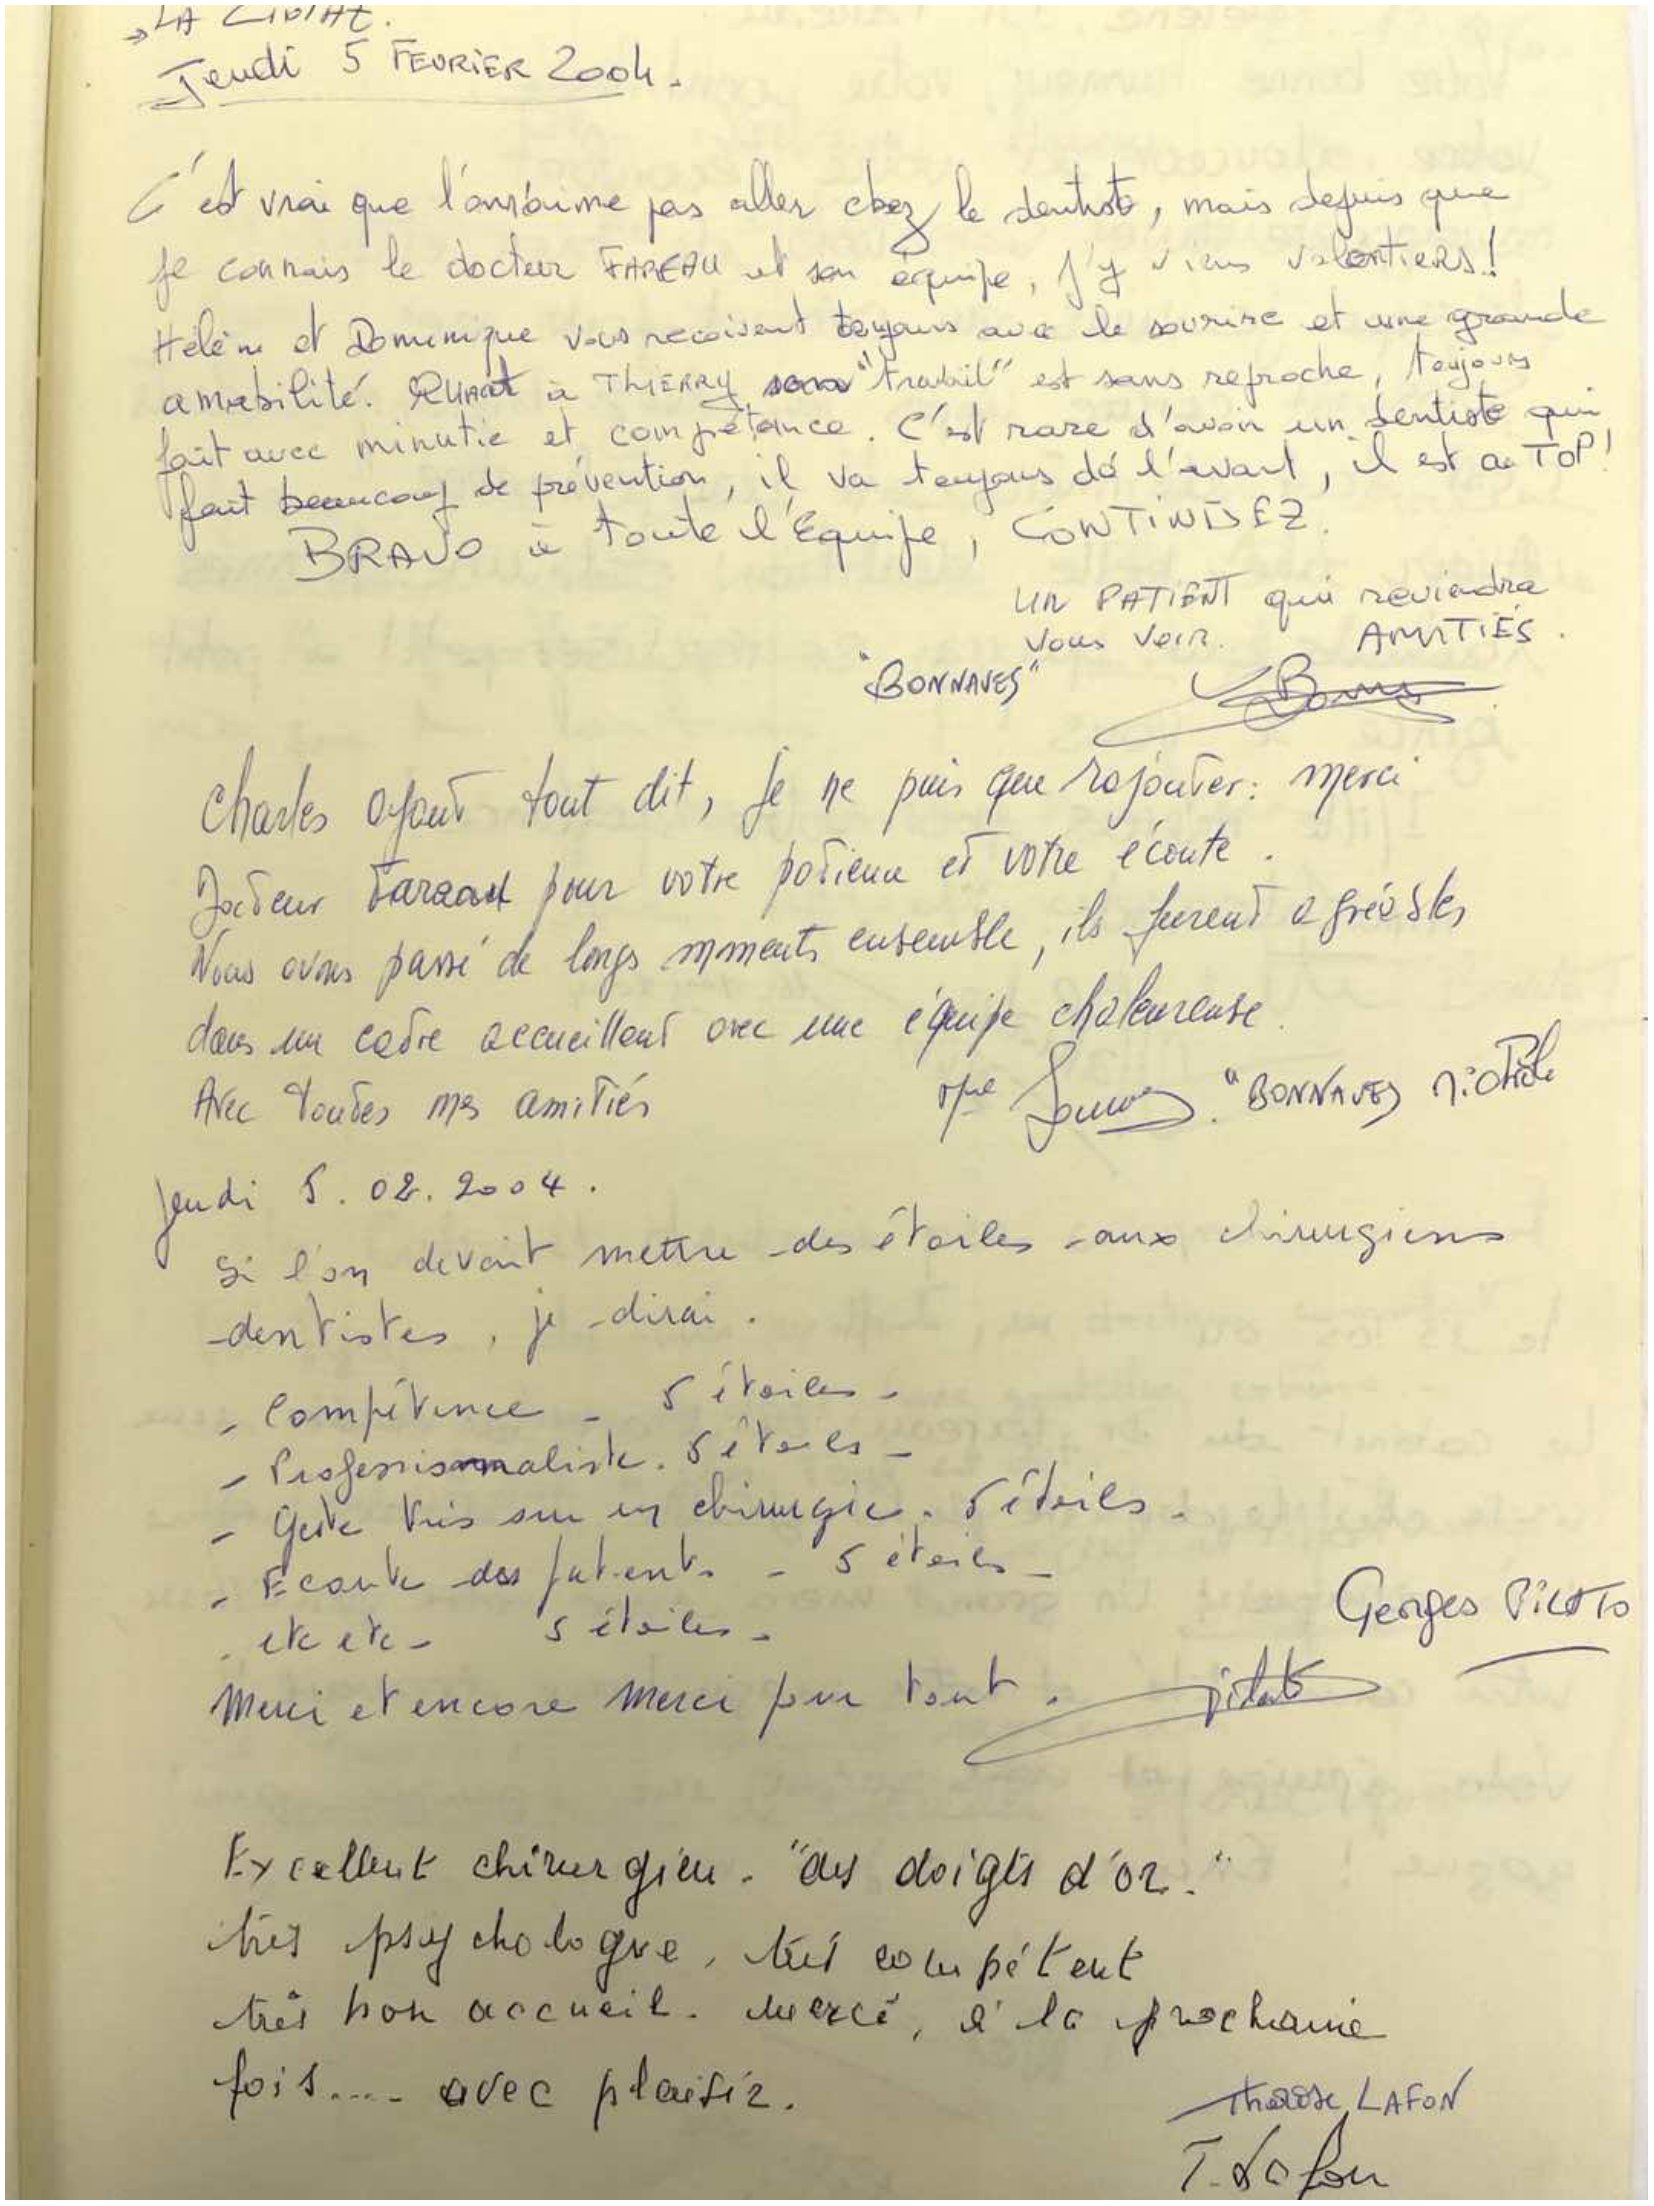 → LA CIOTAT.
Jeudi 5 FEVRIER 2004.
C'est vrai que l'on n'aime pas aller chez le dentiste, mais depuis que
je connais le docteur FAREAU et son équipe, j'y viens volontiers!
Hélène et Dominique vous recoivent toujours avec le sourire et une grande
amabilité. Quant à THIERRY, son "travail" est sans reproche, toujours
fait avec minutie et compétance. C'est rare d'avoir un dentiste qui
fait beaucoup de prévention, il va toujours de l'avant, il est au TOP!
BRAVO à toute l'Equipe, CONTINUEZ.
UN PATIENT qui reviendra
vous voir. AMITIÉS.
"BONNAVES"
Charles ayant tout dit, je ne puis que rajouter: merci
Docteur Fareau pour votre patience et votre écoute.
Nous avons passé de longs moments ensemble, ils furent agréables,
dans un cadre accueillant avec une équipe chaleureuse.
Avec toutes mes amitiés
"BONNAVES Michèle
Jeudi 5.02.2004.
Si l'on devait mettre des étoiles aux chirurgiens
dentistes, je dirai.
- Compétence - 5 étoiles -
- Professionnaliste. 5 étoiles -
- Geste très sur en chirurgie. 5 étoiles -
- Ecoute des patients - 5 étoiles -
- etc etc - 5 étoiles -
Merci et encore merci pour tout.
Georges PILATO
Pilato
Excellent chirurgien. "des doigts d'or."
très psychologue, très compétent
très bon accueil. merci, à la prochaine
fois.... avec plaisir.
Thérèse LAFON
T. Lafon